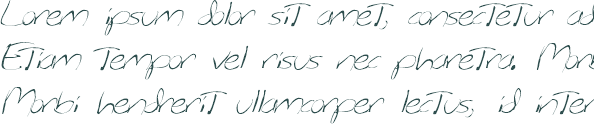 Lorem ipsum dolor sit amet, consectetur ad
Etiam tempor vel risus nec pharetra. Morb
Morbi hendrerit ullamcorper lectus, id inter